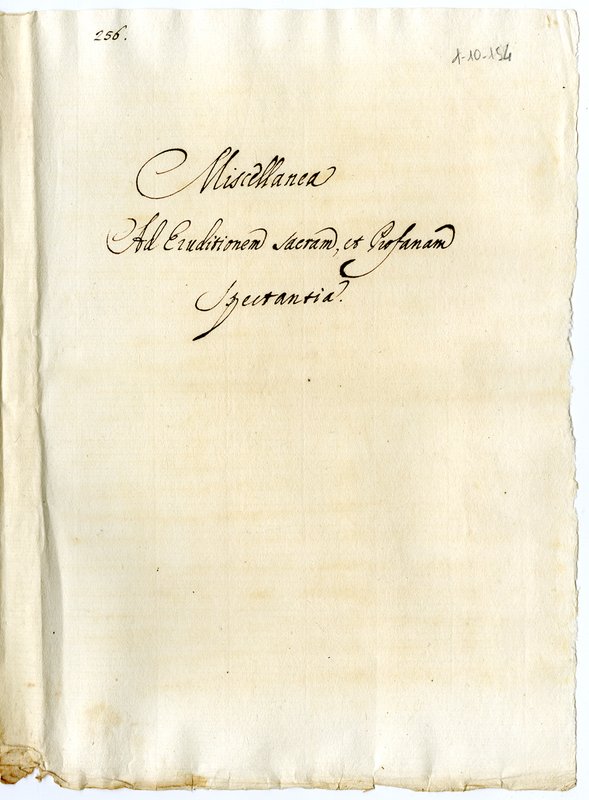 256.
1-10-154
Miscellanea
Ad Eruditionem sacram, et Profanam
Spectantia.